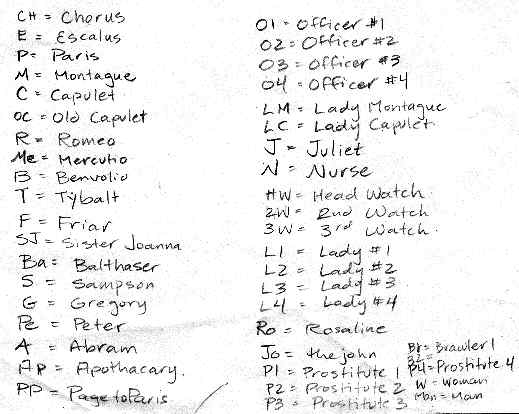 CH = Chorus
E = Escalus
P = Paris
M = Montague
C = Capulet
OC = Old Capulet
R = Romeo
Me = Mercutio
B = Benvolio
T = Tybalt
F = Friar
SJ = Sister Joanna
Ba = Balthaser
S = Sampson
G = Gregory
Pe = Peter
A = Abram
AP = Apothacary.
PP = Page to Paris
O1 = Officer #1
O2 = Officer #2
O3 = Officer #3
O4 = Officer #4
LM = Lady Montague
LC = Lady Capulet
J = Juliet
N = Nurse
HW = Head Watch
2W = 2nd Watch
3W = 3rd Watch
L1 = Lady #1
L2 = Lady #2
L3 = Lady #3
L4 = Lady #4
Ro = Rosaline
Jo = the john
P1 = Prostitute 1
P2 = Prostitute 2
P3 = Prostitute 3
Br = Brawler 1
P4 = Prostitute 4
W = Woman
Man = Man